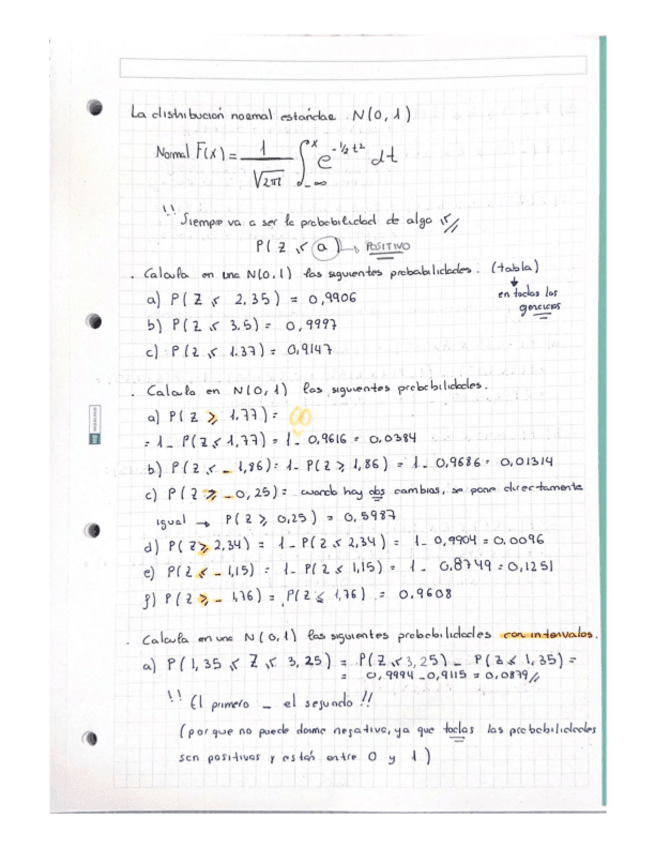 La distribución normal estándar N(0,1)
Normal F(x) = 1/√2π ∫_-∞^x e^-1/2 t² dt
!! Siempre va a ser la probabilidad de algo ≤//
P(Z ≤ a) → POSITIVO
· Calcula en una N(0,1) las siguientes probabilidades: (tabla)
↓ en todos los
a) P(Z ≤ 2,35) = 0,9906
b) P(Z ≤ 3,5) = 0,9997
c) P(Z ≤ 1.37) = 0,9147
· Calcula en N(0,1) las siguientes probabilidades.
a) P(Z ≥ 1,77) =
= 1 - P(Z ≤ 1,77) = 1 - 0,9616 = 0,0384
b) P(Z ≤ -1,86) = 1 - P(Z ≥ 1,86) = 1 - 0,9686 = 0,01314
c) P(Z ≥ -0,25) = cuando hay dos cambios, se pone directamente
igual → P(Z ≥ 0,25) = 0,5987
d) P(Z ≥ 2,34) = 1 - P(Z ≤ 2,34) = 1 - 0,9904 = 0,0096
e) P(Z ≤ -1,15) = 1 - P(Z ≤ 1,15) = 1 - 0,8749 = 0,1251
f) P(Z ≥ -1,76) = P(Z ≤ 1,76) = 0,9608
· Calcula en una N(0,1) las siguientes probabilidades con intervalos.
a) P(1,35 ≤ Z ≤ 3,25) = P(Z ≤ 3,25) - P(Z ≤ 1,35) =
= 0,9994 - 0,9115 = 0,0879//
!! El primero - el segundo !!
(porque no puede darme negativo, ya que todas las probabilidades
son positivas y están entre 0 y 1)